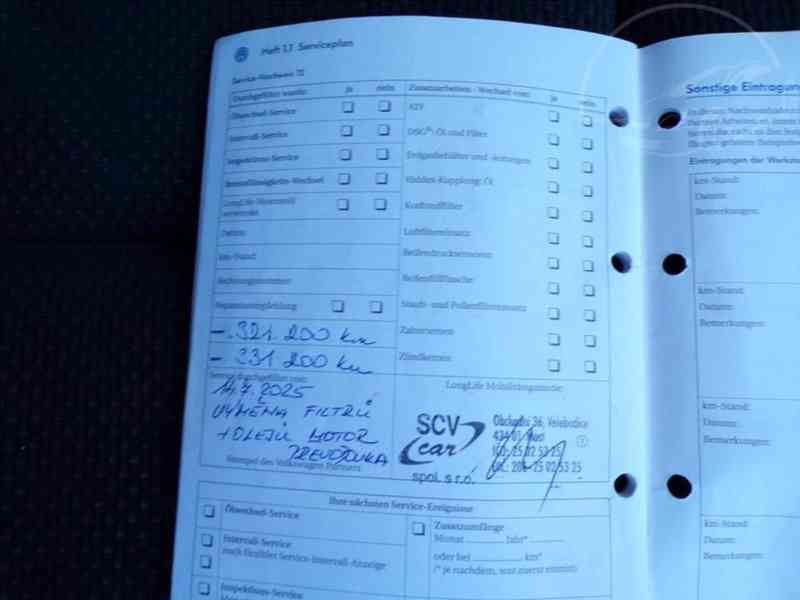 Heft 1.1 Serviceplan
Service-Nachweis 12
Durchgeführt wurde: ja nein
Ölwechsel-Service
Intervall-Service
Inspektions-Service
Bremsflüssigkeits-Wechsel
LongLife-Motorenöl
verwendet
Datum:
km-Stand:
Rechnungsnummer:
Reparaturempfehlung
-. 321. 200 km
-. 331 200 km
Service durchgeführt von:
14.7. 2025
VÝMĚNA FILTRŮ
+ OLEJŮ MOTOR
PŘEVODOVKA
Stempel des Volkswagen Partners
Zusatzarbeiten - Wechsel von: ja nein
ATF
DSG®: Öl und Filter
Erdgasbehälter und -leitungen
Haldex-Kupplung: Öl
Kraftstofffilter
Luftfiltereinsatz
Reifendrucksensoren
Reifenfüllflasche
Staub- und Pollenfiltereinsatz
Zahnriemen
Zündkerzen
LongLife Mobilitätsgarantie:
SCV
car
spol. s r.o.
Obchodní 36, Velebudice
434 01 Most
IČO: 25 02 53 25
25 02 53 25
Ihre nächsten Service-Ereignisse
Ölwechsel-Service
Intervall-Service
nach flexibler Service-Intervall-Anzeige
Inspektions-Service
Zusatzumfänge
Monat Jahr*
oder bei km*
(* je nachdem, was zuerst eintritt)
Sonstige Eintragung
Eintragungen der Werksta
km-Stand:
Datum:
Bemerkungen:
km-Stand:
Datum:
Bemerkungen:
km-Stand:
Datum:
Bemerkungen:
km-Stand:
Datum:
Bemerkungen: